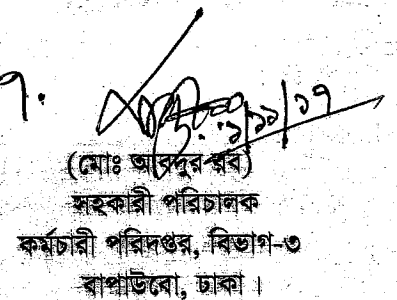 ১/১১/১৭
(মোঃ আবদুর রব)
সহকারী পরিচালক
কর্মচারী পরিদপ্তর, বিভাগ-৩
বাপাউবো, ঢাকা।